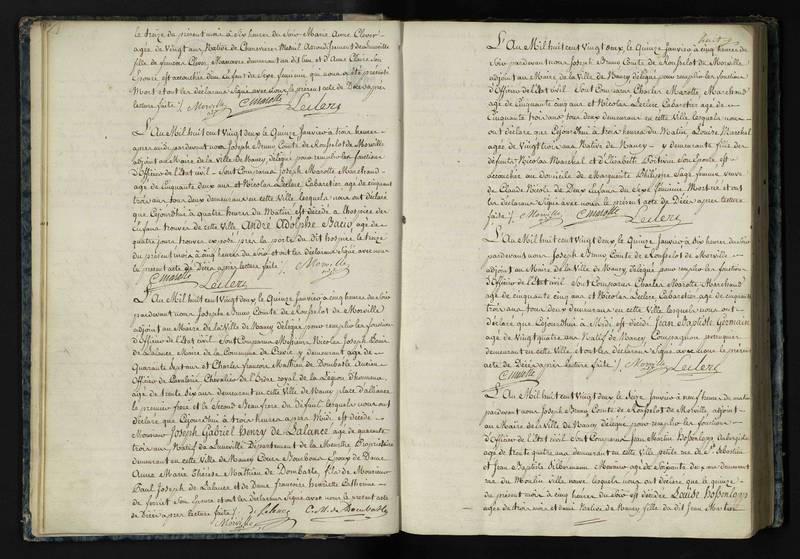 le treize du présent mois à six heures du Soir Marie Anne Clever
agée de Vingt ans Native de
fille de françois demeurant au dit lieu et d'Anne Claire Son
Epouse est accouchée d'un Enfant de Sexe feminin qui nous a été présenté
Mort et ont les déclarans Signé avec nous le présent acte de Décès après
lecture faite /. Morville CMarotte Leclerc
L'An Mil huit cent Vingt deux le Quinze Janvier à trois heures
après midi pardevant nous Joseph Benny Comte de Rouspelot de Morville
adjoint au Maire de la Ville de Nancy délégué pour remplir les fonctions
d'Officier de l'Etat civil Sont Comparus Joseph Marotte Marchand
agé de Cinquante deux ans et Nicolas Leclerc Cabaretier agé de cinquante
trois ans tous deux demeurans en cette Ville lesquels nous ont déclaré
que Cejourd'hui à quatre heures du Matin est décédé à l'hospice des
Enfans trouvés de cette Ville André Adolphe agé de
quatre jours trouvé exposé près la porte du dit hospice le treize
du présent mois à cinq heures du Soir et ont les déclarans Signé avec nous
le présent acte de Décès après lecture faite /. Morville
CMarotte Leclerc
L'An Mil huit cent Vingt deux le Quinze Janvier à cinq heures du Soir
pardevant nous Joseph Benny Comte de Rouspelot de Morville
adjoint au Maire de la Ville de Nancy délégué pour remplir les fonctions
d'Officier de l'Etat civil Sont Comparus Messieurs Nicolas Joseph Louis
de Lalance Maire de la Commune de y demeurant agé de
Quarante Sept ans et Charles françois Mathieu de Dombasle Ancien
Officier de Cavalerie Chevalier de l'Ordre royal de la Légion d'honneur
agé de trente Six ans demeurant en cette Ville de Nancy place d'alliance
le premier frere et le Second Beaufrere du défunt lesquels nous ont
déclaré que Cejourd'hui à trois heures après Midi est décédé
Monsieur Joseph Gabriel Henry de Lalance agé de quarante
trois ans Natif de Lunéville Département de la Meurthe Propriétaire
demeurant en cette Ville de Nancy Cours Bourbon Epoux de Dame
Anne Marie Thérèse Mathieu de Dombasle, fils de Monsieur
Paul Joseph de Lalance et de Dame françoise Henriette Catherine
de Son Epouse et ont les déclarans Signé avec nous le présent acte
de Décès après lecture faite /. de Lalance C. M. de Dombasle
Morville
L'An Mil huit cent Vingt deux, le Quinze Janvier à cinq heures du
Soir pardevant nous Joseph Benny Comte de Rouspelot de Morville
adjoint au Maire de la Ville de Nancy délégué pour remplir les fonctions
d'Officier de l'Etat civil Sont Comparus Charles Marotte Marchand
agé de Cinquante cinq ans et Nicolas Leclerc Cabaretier agé de
Cinquante trois ans tous deux demeurans en cette Ville lesquels nous
ont déclaré que Cejourd'hui à trois heures du Matin Louise Marchal
agée de Vingt trois ans Native de Nancy y demeurante fille des
défunts Nicolas Marchal et d'Elisabeth Son Epouse est
accouchée au domicile de Marguerite Philippe Sage femme Veuve
de Claude Nicole de Deux Enfans du Sexe féminin Morts nés et ont
les déclarans Signé avec nous le présent acte de Décès après lecture
faite /. Morville CMarotte Leclerc
L'An Mil huit cent Vingt deux, le Quinze Janvier à Six heures du Soir
pardevant nous Joseph Benny Comte de Rouspelot de Morville
adjoint au Maire de la Ville de Nancy délégué pour remplir les fonctions
d'Officier de l'Etat civil Sont Comparus Charles Marotte Marchand
agé de cinquante cinq ans et Nicolas Leclerc Cabaretier agé de cinquante
trois ans tous deux demeurans en cette Ville lesquels nous ont
déclaré que Cejourd'hui à Midi est décédé Jean Baptiste Germain
agé de Vingt quatre ans Natif de Nancy Compagnon perruquier
demeurant en cette Ville et ont les déclarans Signé avec nous le présent
acte de Décès après lecture faite /. Morville Leclerc
CMarotte
L'An Mil huit cent Vingt deux le Seize Janvier à neuf heures du matin
pardevant nous Joseph Benny Comte de Rouspelot de Morville, adjoint
au Maire de la Ville de Nancy délégué pour remplir les fonctions
d'Officier de l'Etat civil Sont Comparus Jean Martin Aubergiste
agé de trente quatre ans demeurant en cette Ville petite rue de St Sébastien
et Jean Baptiste agé de Soixante deux ans demeurant
rue du Moulin Ville neuve lesquels nous ont déclaré que le quinze
du présent mois à cinq heures du Soir est décédée Louise
agée de trois mois et demi Native de Nancy fille du dit Jean Martin